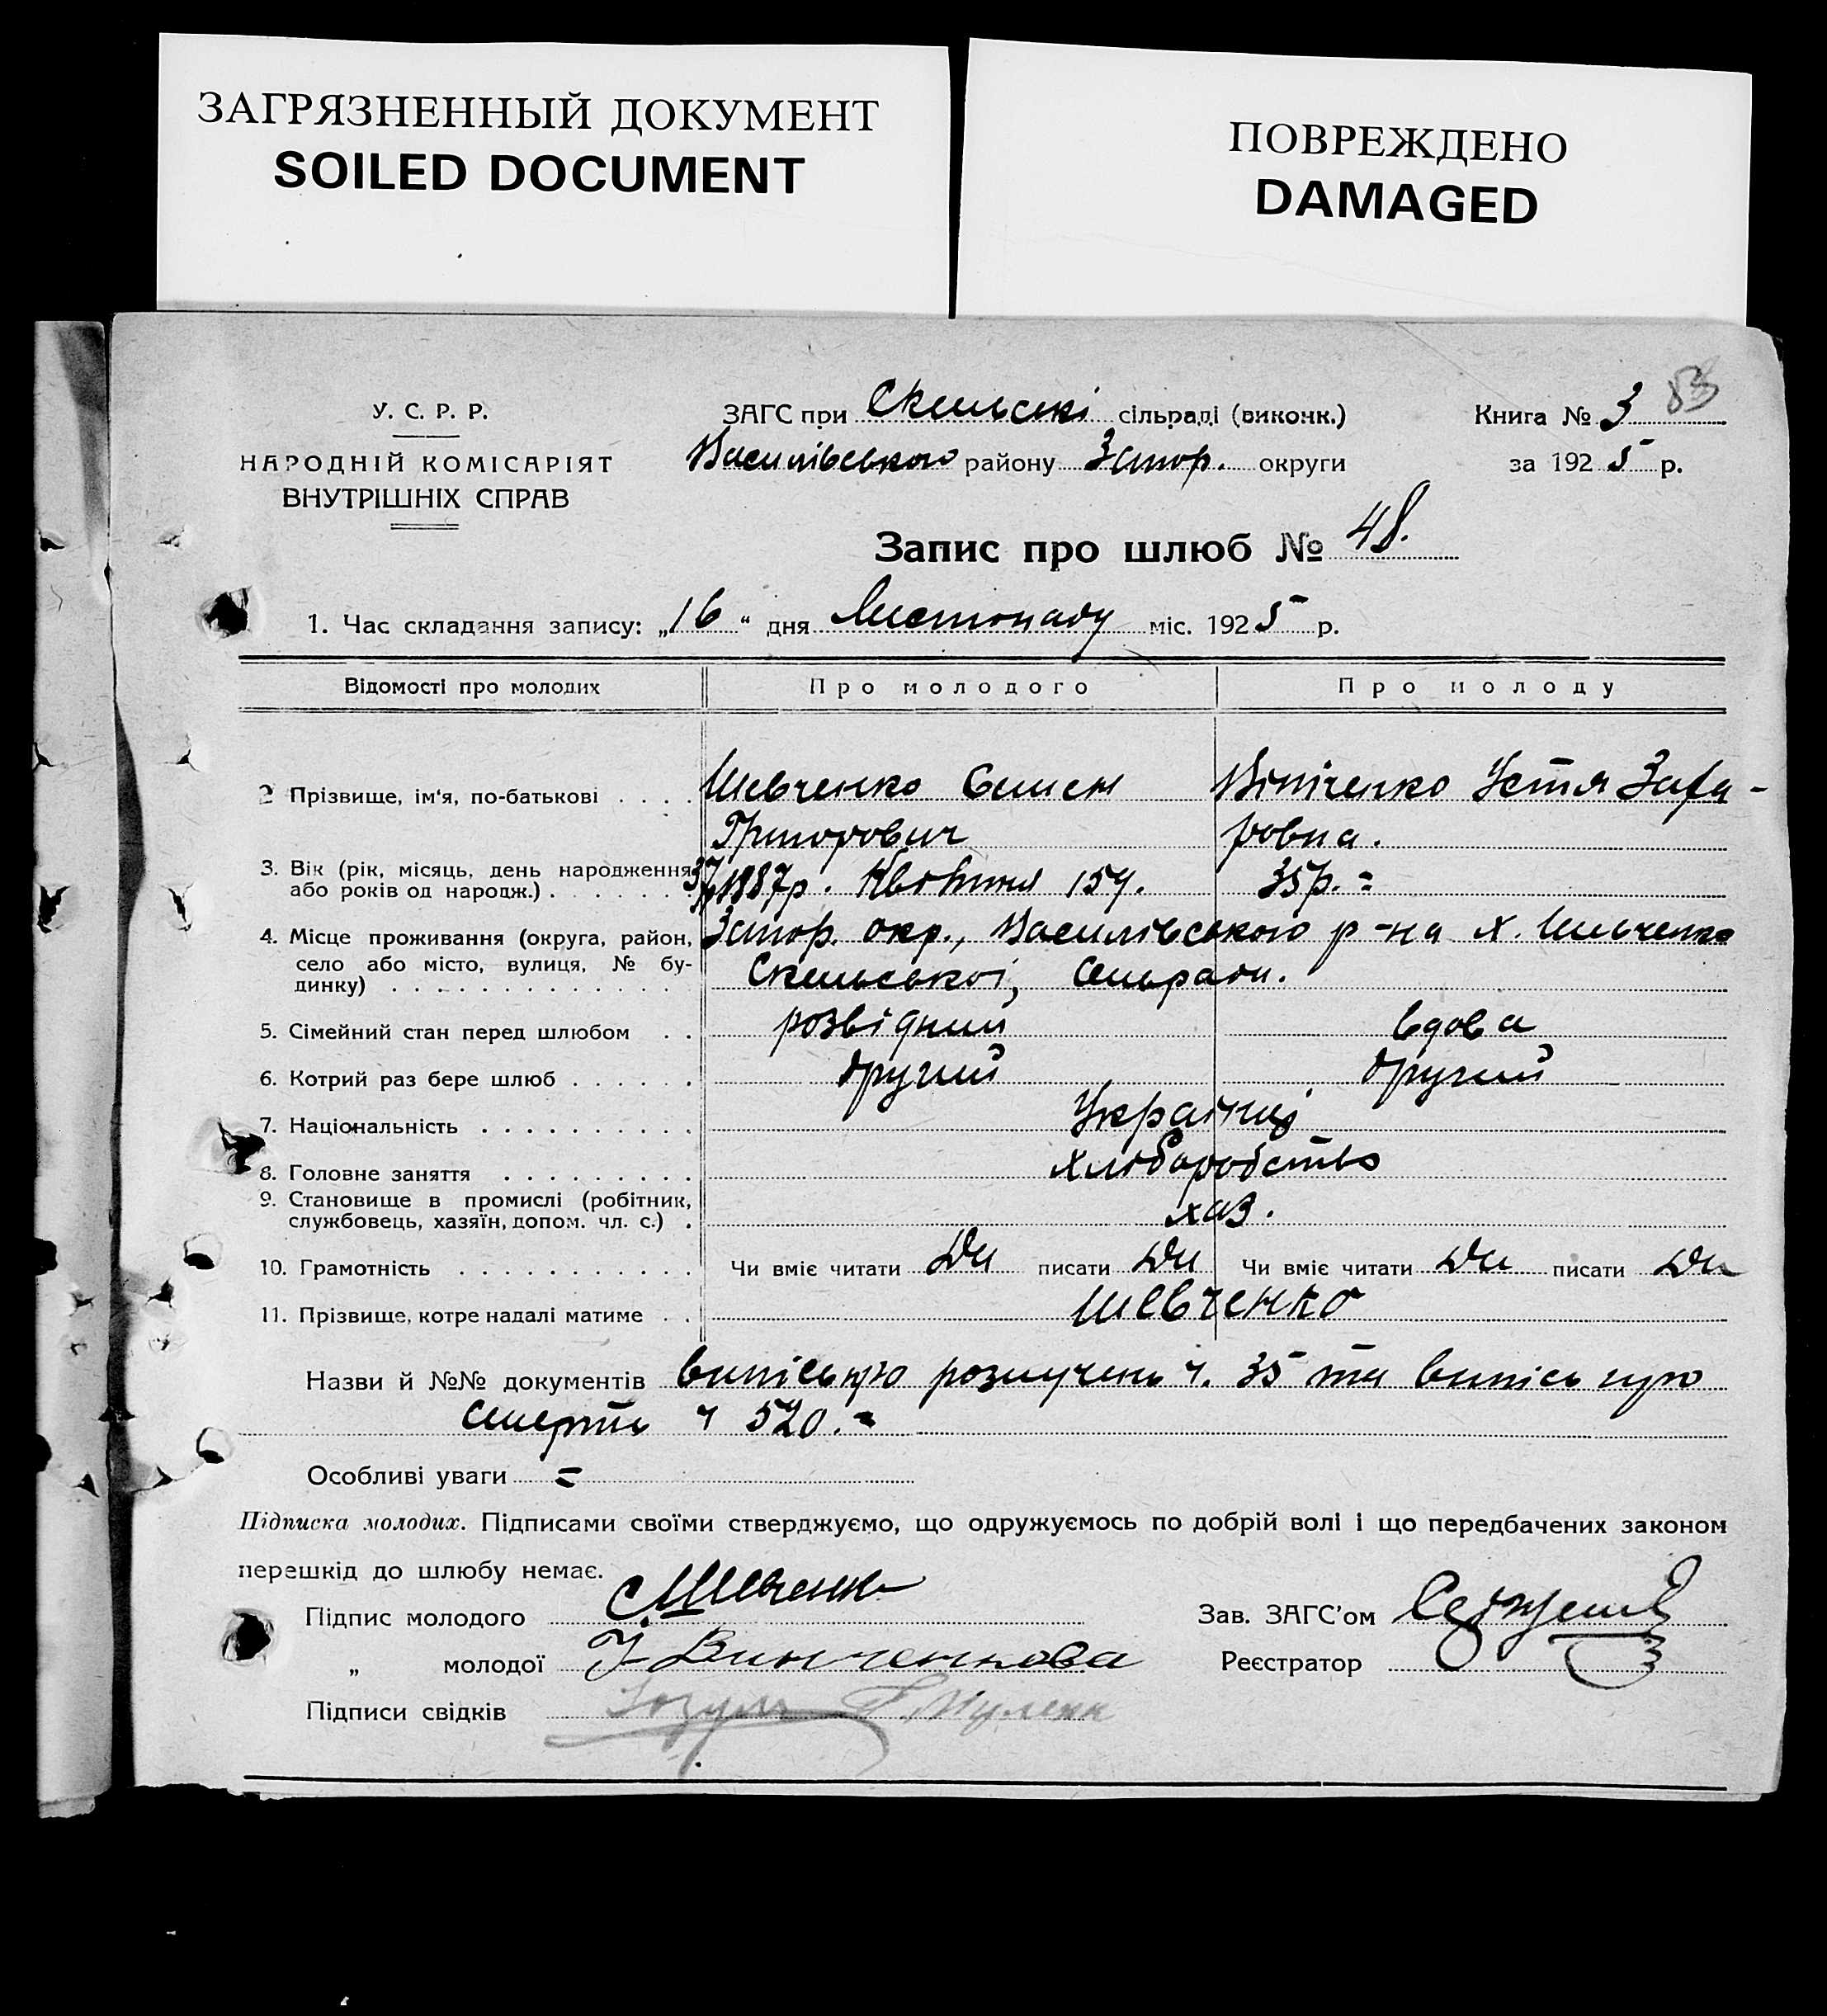 ЗАГРЯЗНЕННЫЙ ДОКУМЕНТ
SOILED DOCUMENT
ПОВРЕЖДЕНО
DAMAGED
83
У. С. Р. Р.
НАРОДНІЙ КОМІСАРІЯТ
ВНУТРІШНІХ СПРАВ
ЗАГС при Скельські сільраді (виконк.)
Василівського району Запор. округи
Книга № 3
за 1925 р.
Запис про шлюб № 48.
1. Час складання запису: „16“ дня Листопаду міс. 1925 р.
Відомості про молодих Про молодого Про молоду
2 Прізвище, ім'я, по-батькові . . . . Шевченко Семен Вініченко Устя Заха-
Григорович ровна.
3. Вік (рік, місяць, день народження 37 1887р. Квітня 15ч. 35р. =
або років од народж.) . . . . . . .
4. Місце проживання (округа, район, Запор. окр., Василівського р-на х. Шевченко
село або місто, вулиця, № бу- Скельської, Сельради.
динку) . . . . . . . . . . . . .
5. Сімейний стан перед шлюбом . . розвідний вдова
6. Котрий раз бере шлюб . . . . . . другий другий
7. Національність . . . . . . . . . . Українці
8. Головне заняття . . . . . . . . . хліборобство
9. Становище в промислі (робітник,
службовець, хазяїн, допом. чл. с.) . хаз.
10. Грамотність . . . . . . . . . . . Чи вміє читати Да писати Да Чи вміє читати Да писати Да
11. Прізвище, котре надалі матиме . . Шевченко
Назви й №№ документів випісь про розлучень ч. 35 та випісь про
смерть ч 520. =
Особливі уваги =
Підписка молодих. Підписами своїми стверджуємо, що одружуємось по добрій волі і що передбачених законом
перешкід до шлюбу немає.
Підпис молодого С. Шевченко
Зав. ЗАГС'ом
„ молодої У Винченкова
Реєстратор
Підписи свідків